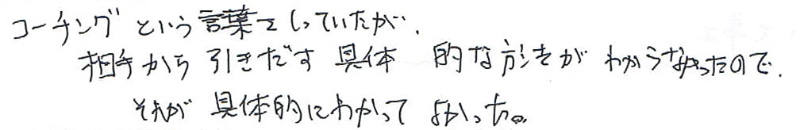 コーチングという言葉をしっていたが、
相手から引きだす具体的な方法がわからなかったので、
それが具体的にわかってよかった。